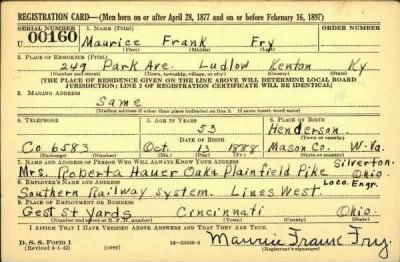 REGISTRATION CARD—(Men born on or after April 28, 1877 and on or before February 16, 1897)
SERIAL NUMBER 1. NAME (Print) ORDER NUMBER
U 00160 Maurice Frank Fry
(First) (Middle) (Last)
2. PLACE OF RESIDENCE (Print)
249 Park Ave. Ludlow Kenton Ky
(Number and street) (Town, township, village, or city) (County) (State)
[THE PLACE OF RESIDENCE GIVEN ON THE LINE ABOVE WILL DETERMINE LOCAL BOARD
JURISDICTION; LINE 2 OF REGISTRATION CERTIFICATE WILL BE IDENTICAL]
3. MAILING ADDRESS
Same
[Mailing address if other than place indicated on line 2. If same insert word same]
4. TELEPHONE 5. AGE IN YEARS 6. PLACE OF BIRTH
53 Henderson
DATE OF BIRTH (Town or county)
Co 6583 Oct. 13 1888 Mason Co. W. Va.
(Exchange) (Number) (Mo.) (Day) (Yr.) (State or country)
7. NAME AND ADDRESS OF PERSON WHO WILL ALWAYS KNOW YOUR ADDRESS Silverton.
Mrs. Roberta Hauer Oak & Plainfield Pike Ohio.
8. EMPLOYER'S NAME AND ADDRESS Loco. Engr.
Southern Railway System. Lines West.
9. PLACE OF EMPLOYMENT OR BUSINESS
Gest St Yards Cincinnati Ohio.
(Number and street or R. F. D. number) (Town) (County) (State)
I AFFIRM THAT I HAVE VERIFIED ABOVE ANSWERS AND THAT THEY ARE TRUE.
D. S. S. Form 1 Maurice Frank Fry.
(Revised 4-1-42) (over) (Registrant's signature)